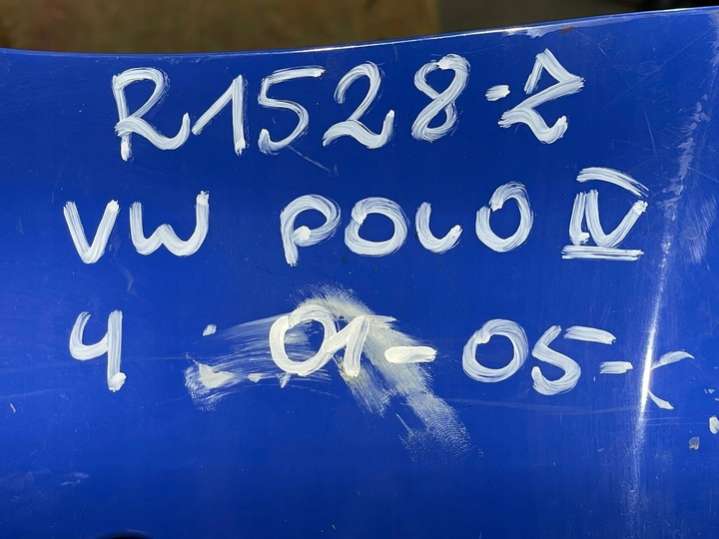 R1528-Z
VW POLO IV
4 01-05-